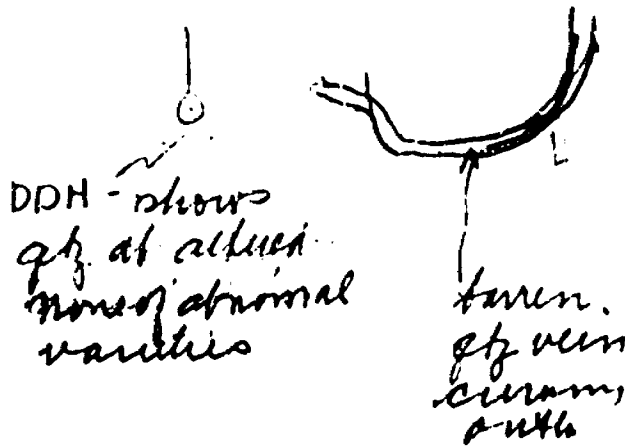 DDH - shows
qtz at
none of abnormal
varieties
L
barren.
qtz vein